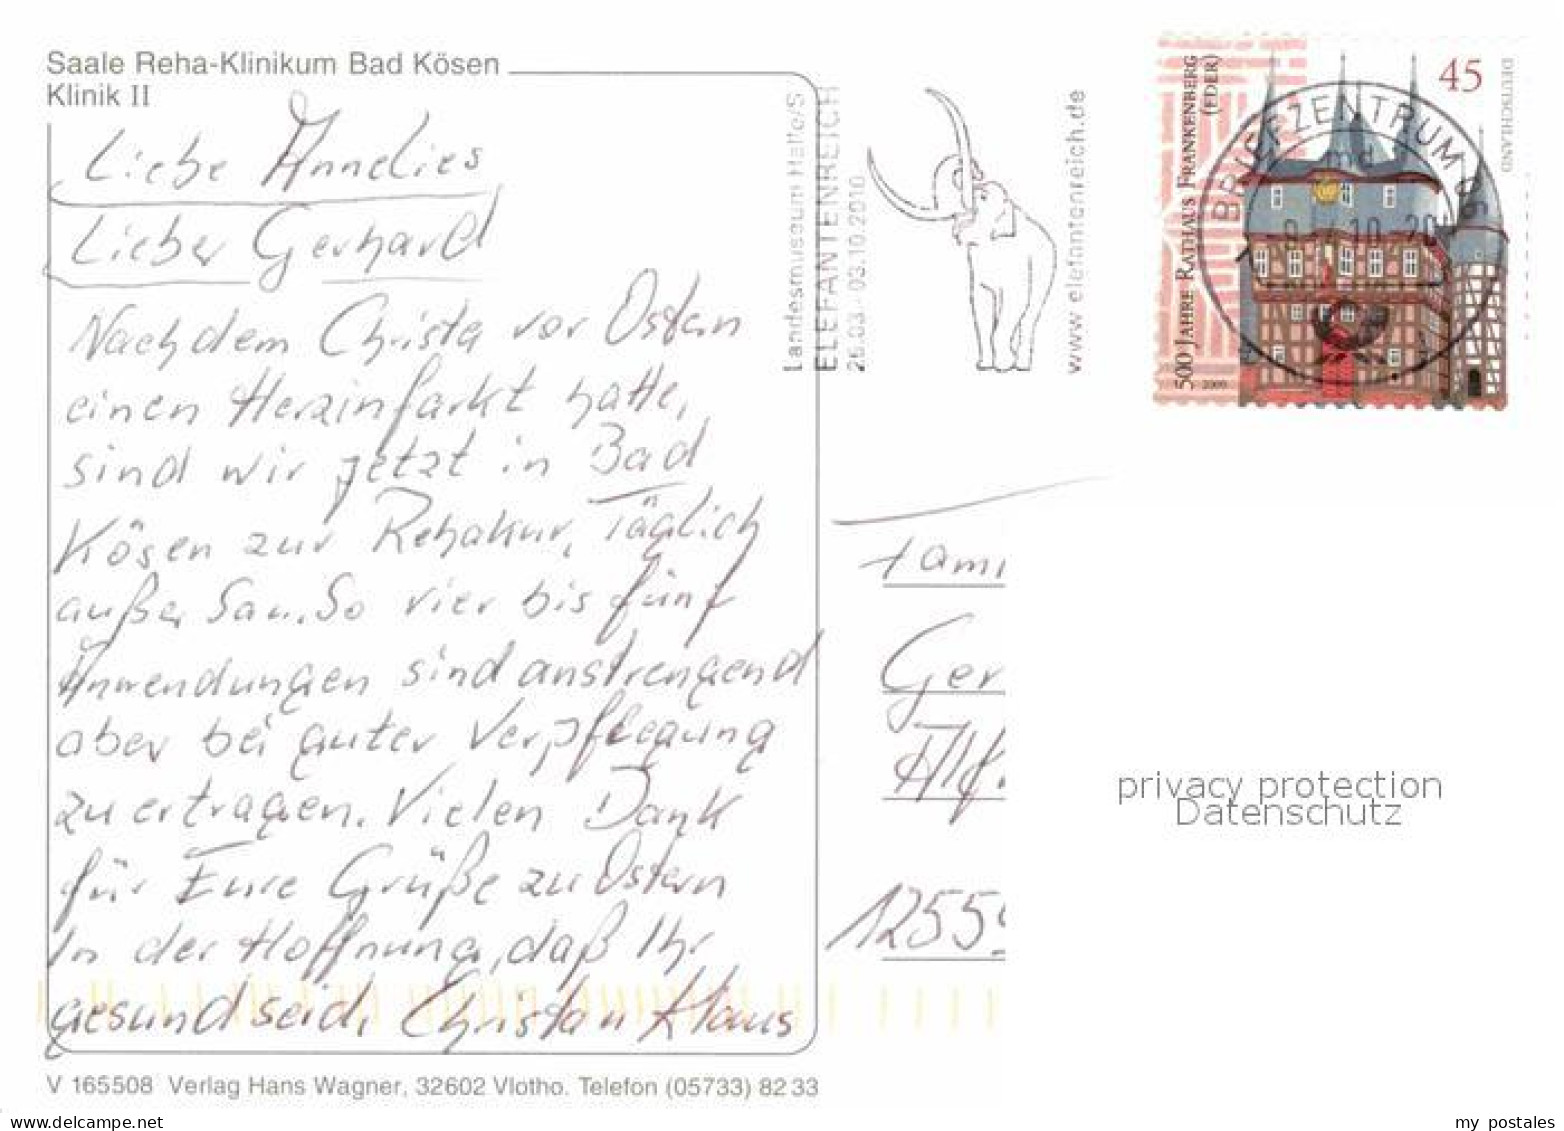 Saale Reha-Klinikum Bad Kösen
Klinik II
Liebe Annelies
Lieber Gerhard
Nachdem Christa vor Ostern
einen Herzinfarkt hatte,
sind wir jetzt in Bad
Kösen zur Rehakur, Täglich
außer Sa u. So vier bis fünf
Anwendungen sind anstrengend
aber bei guter Verpflegung
zu ertragen. Vielen Dank
für Eure Grüße zu Ostern
In der Hoffnung, daß Ihr
gesund seid,
V 165508 Verlag Hans Wagner, 32602 Vlotho. Telefon (05733) 82 33
Landesmuseum Halle/S
ELEFANTENREICH
26.03.-03.10.2010
www.elefantenreich.de
500 JAHRE RATHAUS FRANKENBERG
(EDER)
2009
45
DEUTSCHLAND
BRIEFZENTRUM 06
md
Fami
Ger
1255
privacy protection
Datenschutz
delcampe.net
my_postales